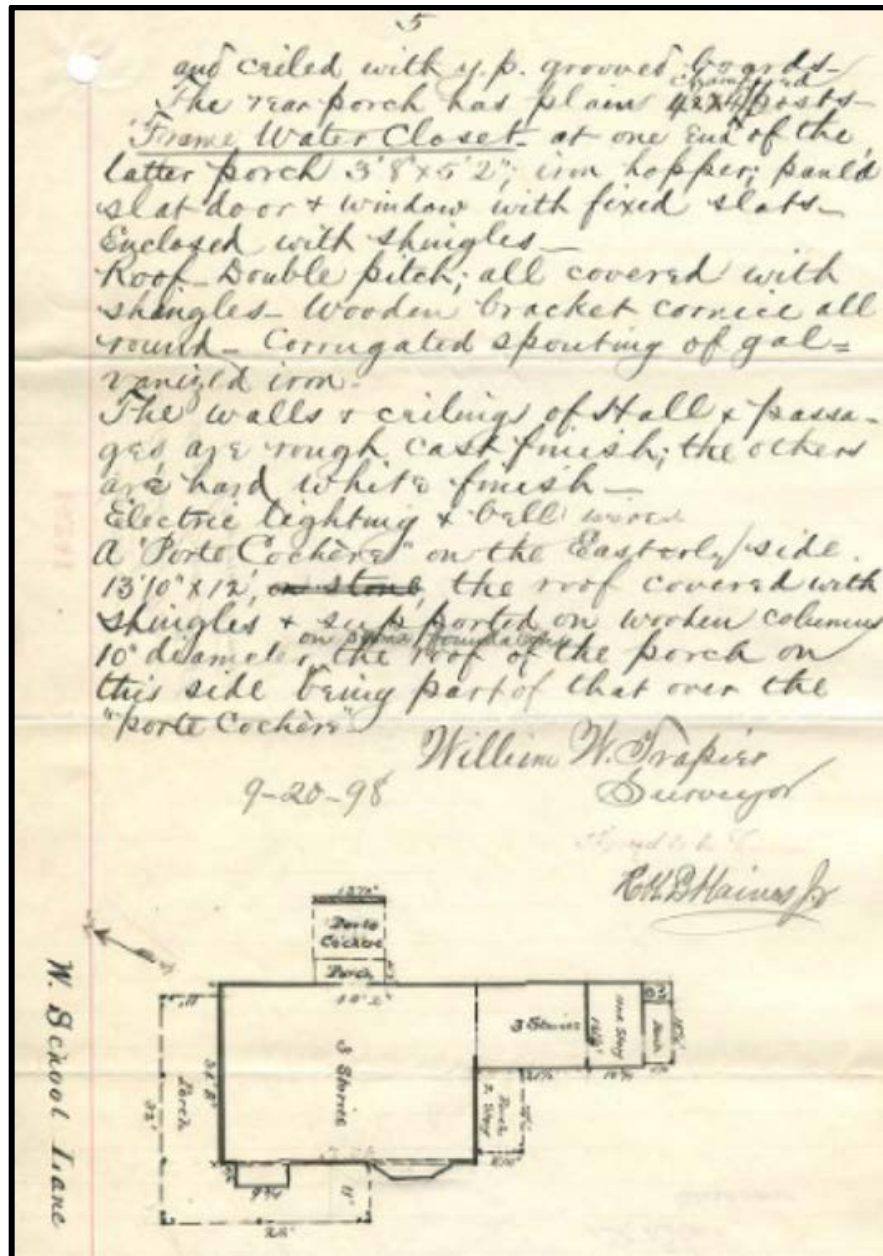 5
and ceiled with y.p. grooved boards—
chamfered
The rear porch has plain posts—
Frame Water Closet— at one End of the
latter porch 3'8"x5'2"; iron hopper; panl'd
slat door & window with fixed slats—
Enclosed with shingles—
Roof— Double pitch; all covered with
shingles— Wooden bracket cornice all
round— Corrugated spouting of gal=
vanized iron.
The walls & ceilings of Hall & passa-
ges are rough cast finish; the others
are hard white finish—
Electric lighting & bell wires
A "Porte Cochère" on the Easterly side.
13'10"x12', on stone, the roof covered with
shingles & supported on wooden columns
on foundations
10" diameter, the roof of the porch on
this side being part of that over the
"porte Cochère"
William W. Trapier
Surveyor
9-20-98
Haines Jr
Porte
Cochère
Porch
3 Stories
3 Stories
One Story
Porch
Porch
2 Story
Porch
32'
34'8"
11'
11'
W. School Lane